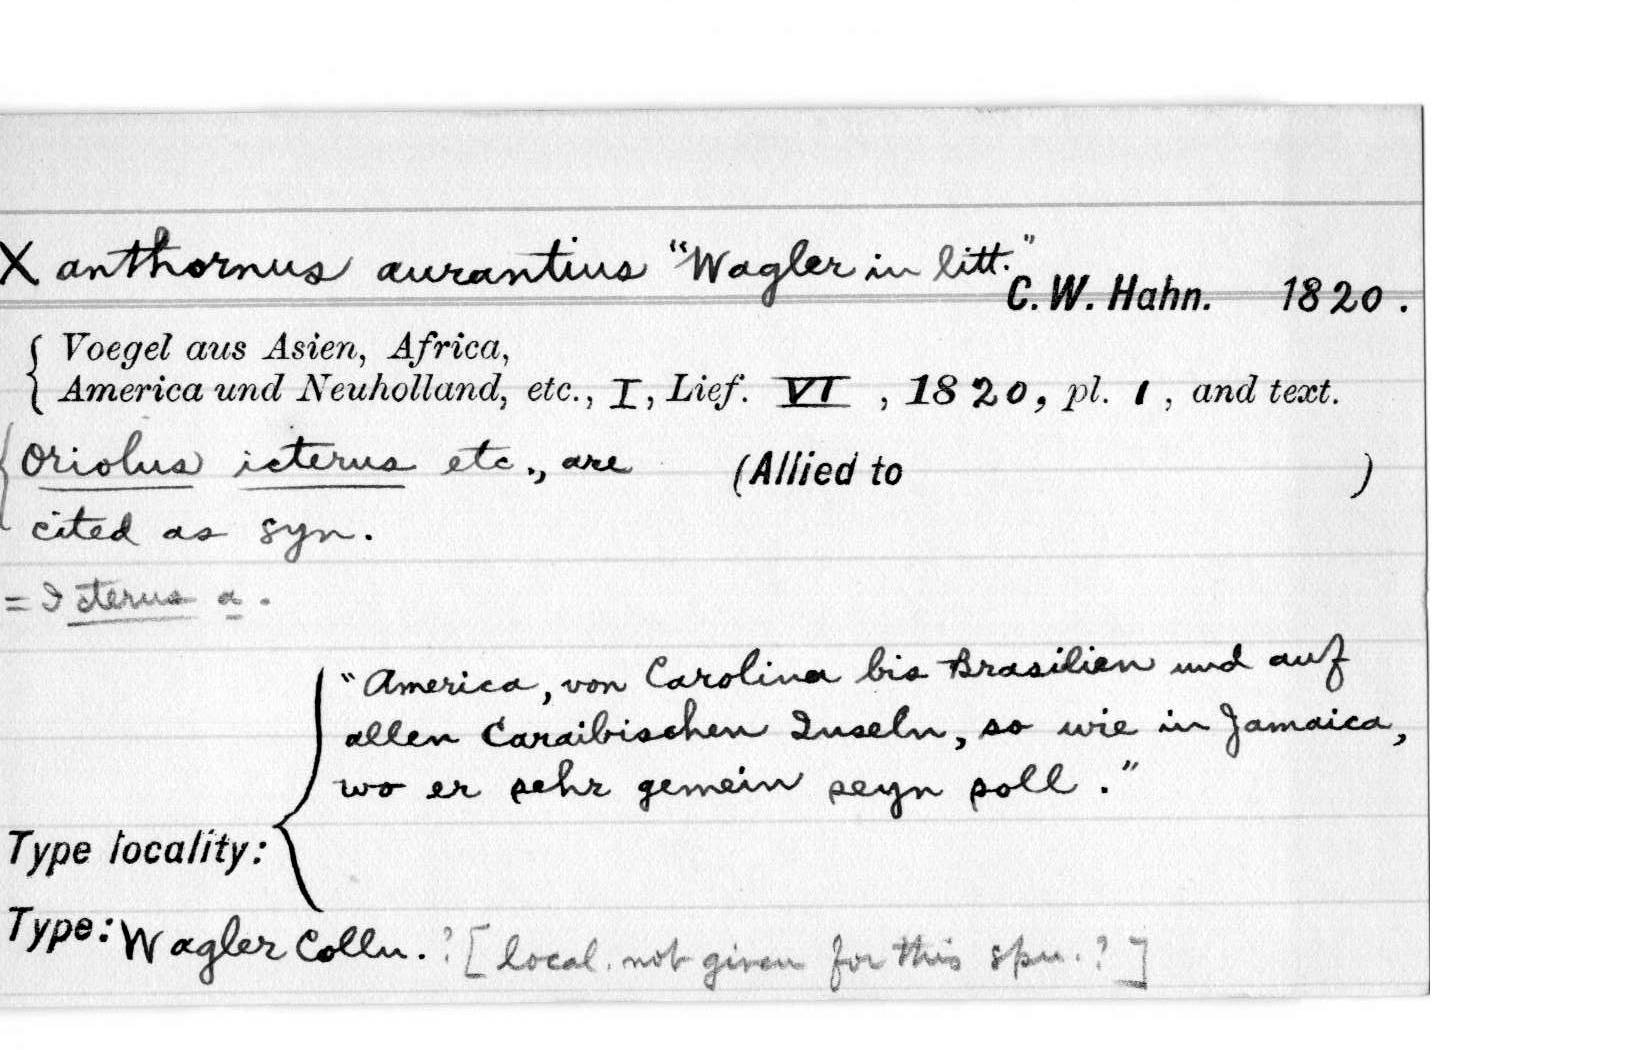 Xanthornus aurantius "Wagler in litt."
C. W. Hahn. 1820.
Voegel aus Asien, Africa,
America und Neuholland, etc., I, Lief. VI, 1820, pl. 1, and text.
Oriolus icterus etc., are (Allied to )
cited as syn.
= Icterus a.
"America, von Carolina bis Brasilien und auf
allen Caraibischen Inseln, so wie in Jamaica,
wo er sehr gemein seyn soll."
Type locality:
Type: Wagler Colln. ? [local. not given for this spn.?]